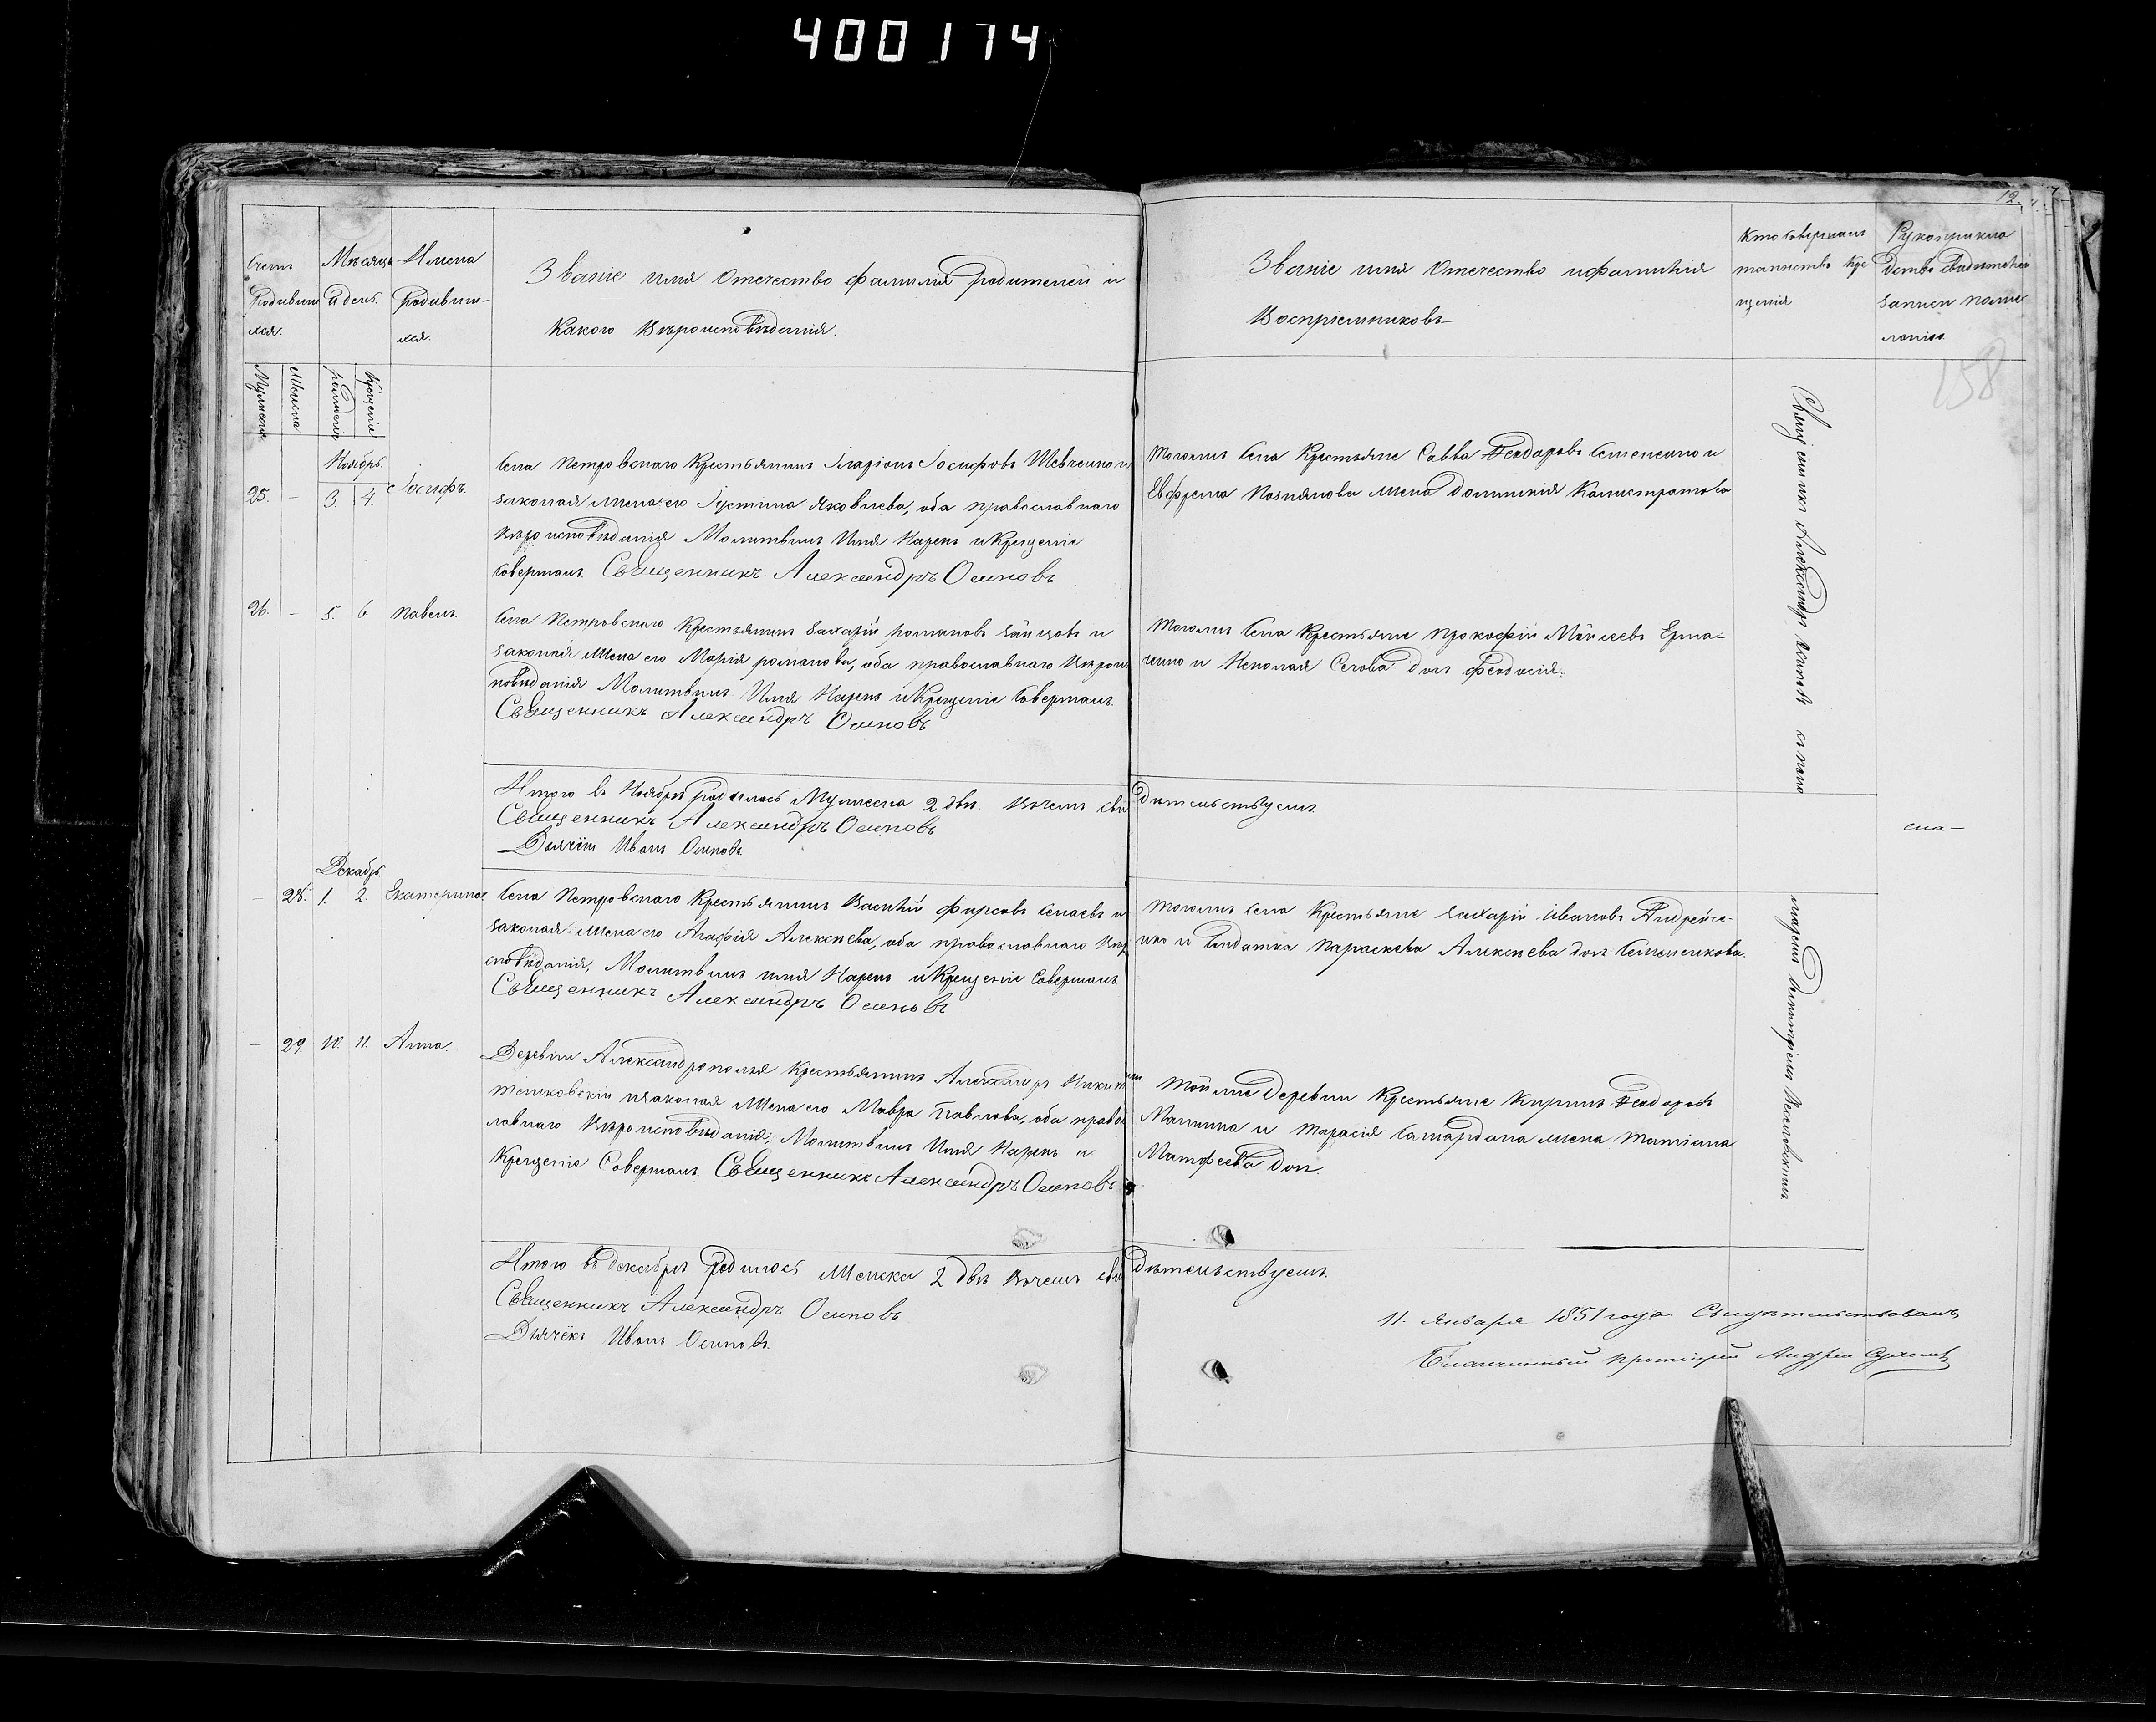 400174
12
Счетъ Родившихся.
Мѣсяцъ и день.
Имена Родившихся.
Званіе имя Отечество фамилія родителей и
Какого Вѣроисповѣданія.
Званіе имя Отечество и фамилія
Воспріемниковъ
Кто Совершалъ
таинство Кре
щенія
Рукоприкла
дство свидѣтелей
записи
158
Мужеска
Женска
рожденія
Крещенія
Ноябрь.
25. — 3. 4. Іосифъ.
Села Петровскаго Крестьянинъ Іларіонъ Іосифовъ Шевченко и
законная жена его Іустина Яковлева, оба православнаго
вѣроисповѣданія Молитвилъ Имя Нарекъ и Крещеніе
Совершалъ. Священникъ Александръ Осиповъ
Тогожъ Села Крестьяне Савва Феодоровъ Семененко и
Евфрема жена Каллистратова
26. — 5. 6. Павелъ.
Села Петровскаго Крестьянинъ Захарій романовъ Зайцовъ и
законная жена его Марія романова, оба православнаго Вѣроис
повѣданія Молитвилъ Имя Нарекъ и Крещеніе Совершалъ.
Священникъ Александръ Осиповъ
Тогожъ Села Крестьяне Прокофій Мойсеевъ Ерма-
ченко и дочь Феодосія.
Итого въ Ноябрѣ родилось Мужеска 2 два. Въ чемъ сви
дѣтельствуемъ.
Священникъ Александръ Осиповъ
Дьячекъ Иванъ Осиповъ
Декабрь.
— 28. 1. 2. Екатерина.
Села Петровскаго Крестьянинъ Василій Фирсовъ и
законная жена его Агафія Алексѣева, оба православнаго Вѣр
сповѣданія, Молитвилъ имя Нарекъ и Крещеніе Совершалъ
Священникъ Александръ Осиповъ
Тогожъ села Крестьяне Захарій Ивановъ Андрейче-
нко и Солдатка Параскева Алексѣева дочь Семененкова.
— 29. 10. 11. Анна.
Деревни Александрополья Крестьянинъ Александръ Никитинъ
и законная жена его Мавра Павлова, оба правос
лавнаго Вѣроисповѣданія, Молитвилъ Имя Нарекъ и
Крещеніе Совершалъ. Священникъ Александръ Осиповъ
Той же Деревни Крестьяне Кирилъ Феодоровъ
и Тарасія жена Татіана
Матфеева дочь.
Священникъ Александръ Осиповъ съ поно
маремъ Димитріемъ Веселовскимъ
Итого въ декабрѣ Родилось Женска 2 двѣ Въ чемъ сви
дѣтельствуемъ.
Священникъ Александръ Осиповъ
Дьячекъ Иванъ Осиповъ.
11. Января 1851 года Свидѣтельствовалъ
Благочинный протоіерей Андрей